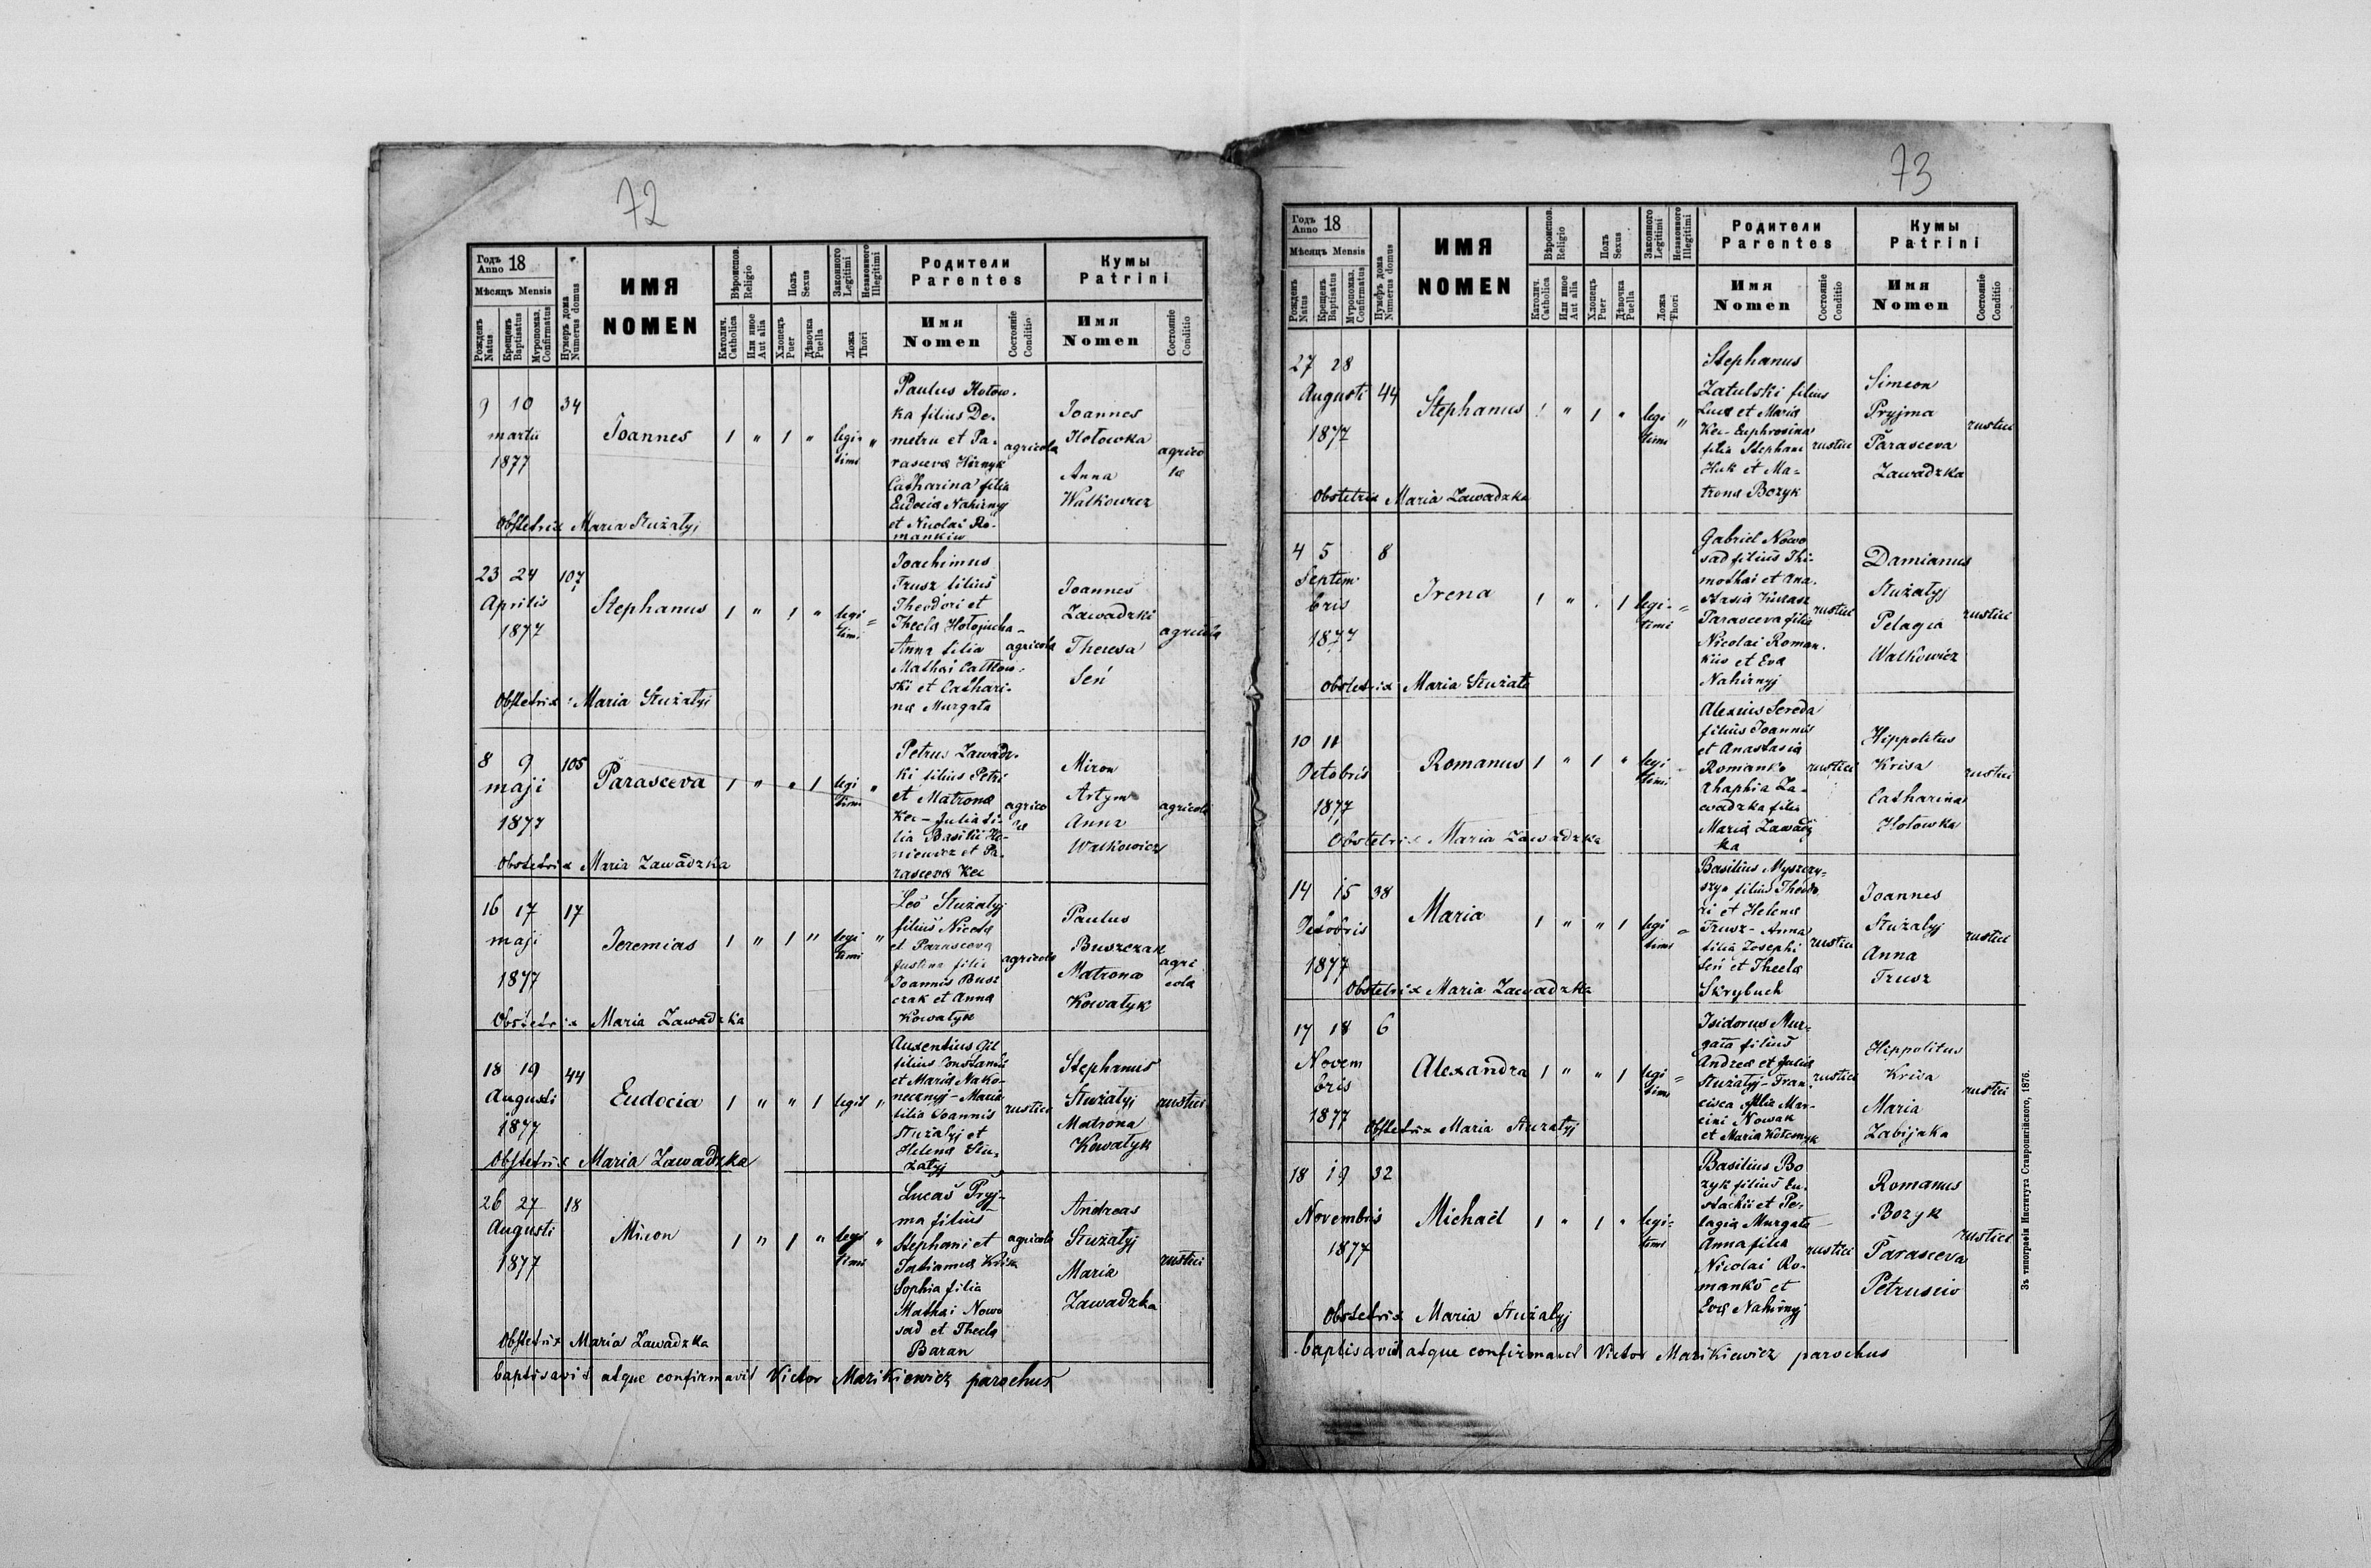 72
Годъ Anno 18
Мѣсяцъ Mensis
Рожденъ Natus
Крещенъ Baptisatus
Мѵропомаз. Confirmatus
Нумеръ дома Numerus domus
ИМЯ
NOMEN
Вѣроиспов. Religio
Католич. Catholica
Или иное Aut alia
Полъ Sexus
Хлопецъ Puer
Дѣвочка Puella
Законного Legitimi
Незаконного Illegitimi
Ложа Thori
Родители
Parentes
Имя
Nomen
Состоянiе Conditio
Кумы
Patrini
Имя
Nomen
Состоянiе Conditio
9 10 34
martii
1877
Joannes
1 " 1 "
legi-
timi "
Paulus Hołow-
ka filius De-
metrii et Pa-
rasceva Hirnyk
Catharina filia
Eudocia Nahirnyj
et Nicolai Ro-
mankiw
agricola
Joannes
Hołowka
Anna
Walkowicz
agrico
la
Obstetrix Maria Stużałyj
23 24 107
Aprilis
1877
Stephanus
1 " 1 "
legi
timi =
Joachimus
Trusz filius
Theodori et
Thecla
Anna filia
Mathai
ski et Cathari-
na Murgała
agricola
Joannes
Zawadzki
Theresa
Seń
agricola
Obstetrix : Maria Stużałyj
8 9 105
maji
1877
Parasceva
1 " " 1
legi
timi "
Petrus Zawadz-
ki filius Petri
et Matrona
Kec - Julia fi-
lia Basilii Ha-
niewicz et Pa-
rasceva Kec
agrico
la
Miron
Artym
Anna
Walkowicz
agricola
Obstetrix Maria Zawadzka
16 17 17
maji
1877
Jeremias
1 " 1 "
legi
timi "
Leo Stużałyj
filius Nicola
et Parasceva
Justina filia
Joannis Busz
czak et Anna
Kowałyk
agricola
Paulus
Buszczak
Matrona
Kowałyk
agri
cola
Obstetrix Maria Zawadzka
18 19 44
Augusti
1877
Eudocia
1 " " 1
legit "
Auxentius Gil
filius Constantii
et Maria Nako-
necznyj - Maria
filia Joannis
Stużałyj et
Helena Stu-
żałyj
rustici
Stephanus
Stużałyj
Matrona
Kowałyk
rustici
Obstetrix Maria Zawadzka
26 27 18
Augusti
1877
Miron
1 " 1 "
legi
timi "
Lucas Pryj-
ma filius
Stephani et
Tatianna Krisa
Sophia filia
Mathai Nowo
sad et Thecla
Baran
agricola
Andreas
Stużałyj
Maria
Zawadzka
rustici
Obstetrix Maria Zawadzka
baptisavit atque confirmavit Victor Marikiewicz parochus
73
Годъ Anno 18
Мѣсяцъ Mensis
Рожденъ Natus
Крещенъ Baptisatus
Мѵропомаз. Confirmatus
Нумеръ дома Numerus domus
ИМЯ
NOMEN
Вѣроиспов. Religio
Католич. Catholica
Или иное Aut alia
Полъ Sexus
Хлопецъ Puer
Дѣвочка Puella
Законного Legitimi
Незаконного Illegitimi
Ложа Thori
Родители
Parentes
Имя
Nomen
Состоянiе Conditio
Кумы
Patrini
Имя
Nomen
Состоянiе Conditio
27 28
Augusti 44
1877
Stephanus
1 " 1 "
legi
timi "
Stephanus
Zatulski filius
Luca et Maria
Kec - Euphrosina
filia Stephani
Huk et Ma-
trona Bozyk
rustici
Simeon
Pryjma
Parasceva
Zawadzka
rustici
Obstetrix Maria Zawadzka
4 5 8
Septem
bris
1877
Irena
1 " . 1
legi-
timi =
Gabriel Nowo
sad filius Thi-
mothai et Ana-
stasia
Parasceva filia
Nicolai Roman-
kiw et Eva
Nahirnyj
rustici
Damianus
Stużałyj
Pelagia
Walkowicz
rustici
Obstetrix Maria Stużałi
10 11
Octobris
1877
Romanus
1 " 1 "
legi
timi
Alexius Sereda
filius Joannis
et Anastasia
Romanko
Rhaphia Za-
wadzka filia
Maria Zawadz
ka
rustici
Hippolitus
Krisa
Catharina
Hołowka
rustici
Obstetrix Maria Zawadzka
14 15 38
Octobris
1877
Maria
1 " " 1
legi
timi =
Basilius Myszczy-
szyn filius Theodo
ri et Helena
Trusz - Anna
filia Josephi
Seń et Thecla
Skrybuch
rustici
Joannes
Stużałyj
Anna
Trusz
rustici
Obstetrix Maria Zawadzka
17 18 6
Novem
bris
1877
Alexandra
1 " " 1
legi
timi =
Isidorus Mur-
gała filius
Andrea et Julia
Stużałyj - Fran-
cisca filia Mar-
cini Nowak
et Maria
rustici
Hippolitus
Krisa
Maria
Zabijaka
rustici
Obstetrix Maria Stużałyj
18 19 32
Novembris
1877
Michaël
1 " 1 "
legi-
timi
Basilius Bo
zyk filius Eu-
stachii et Pe-
lagia Murgała
Anna filia
Nicolai Ro-
manko et
Eva Nahirnyj
rustici
Romanus
Bozyk
Parasceva
Petrusiw
rustici
Obstetrix Maria Stużałyj
baptisavit atque confirmavit Victor Marikiewicz parochus
Зъ типографiи Института Ставропигiйского, 1876.